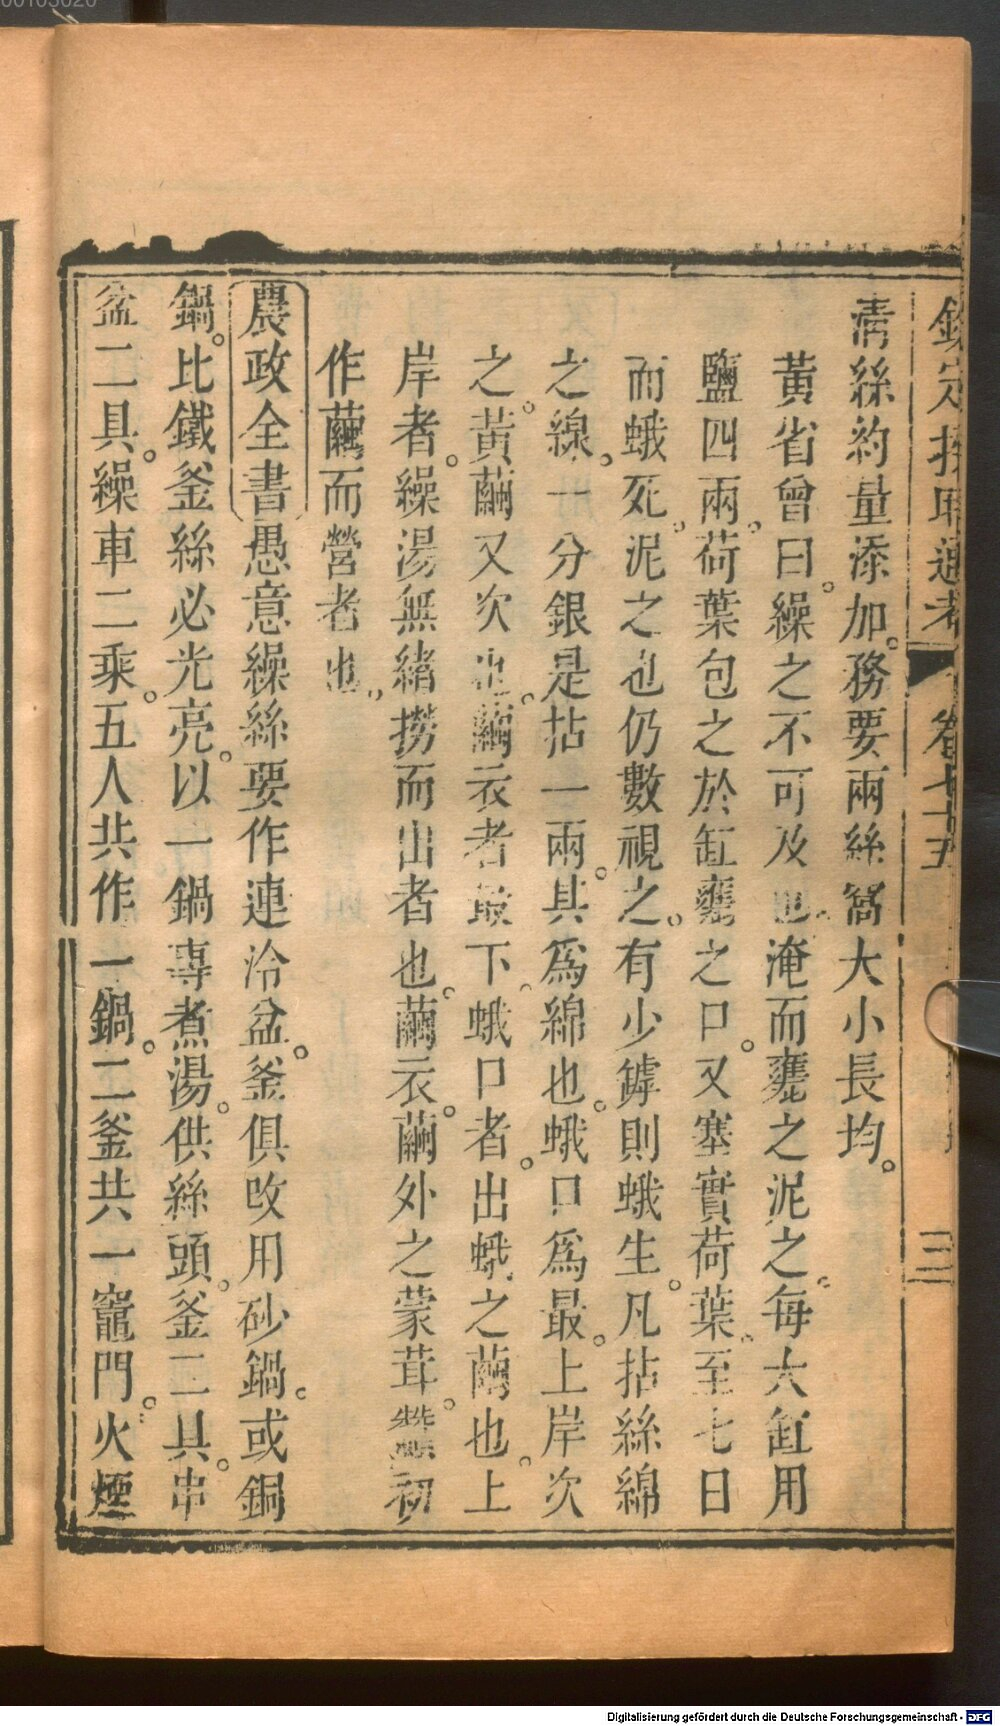 欽定授時通考 卷七十五 三
清絲約量添加。務要兩絲窩大小長均。
黃省曾曰。繰之不可及也。淹而甕之泥之。每大缸用
鹽四兩。荷葉包之於缸甕之口。又塞實荷葉。至七日
而蛾死。泥之也仍數視之。有少罅則蛾生。凡拈絲綿
之線。一分銀是拈一兩。其為綿也。蛾口為最。上岸次
之。黃繭又次也。繭衣者最下。蛾口者。出蛾之繭也。上
岸者。繰湯無緒撈而出者也。繭衣。繭外之蒙茸。蠶初
作繭而營者也。
農政全書愚意繰絲要作連冷盆。釜俱改用砂鍋。或銅
鍋。比鐵釜絲必光亮。以一鍋專煮湯。供絲頭。釜二具。串
盆二具。繰車二乘。五人共作一鍋。二釜共一竈門。火煙
Digitalisierung gefördert durch die Deutsche Forschungsgemeinschaft - DFG